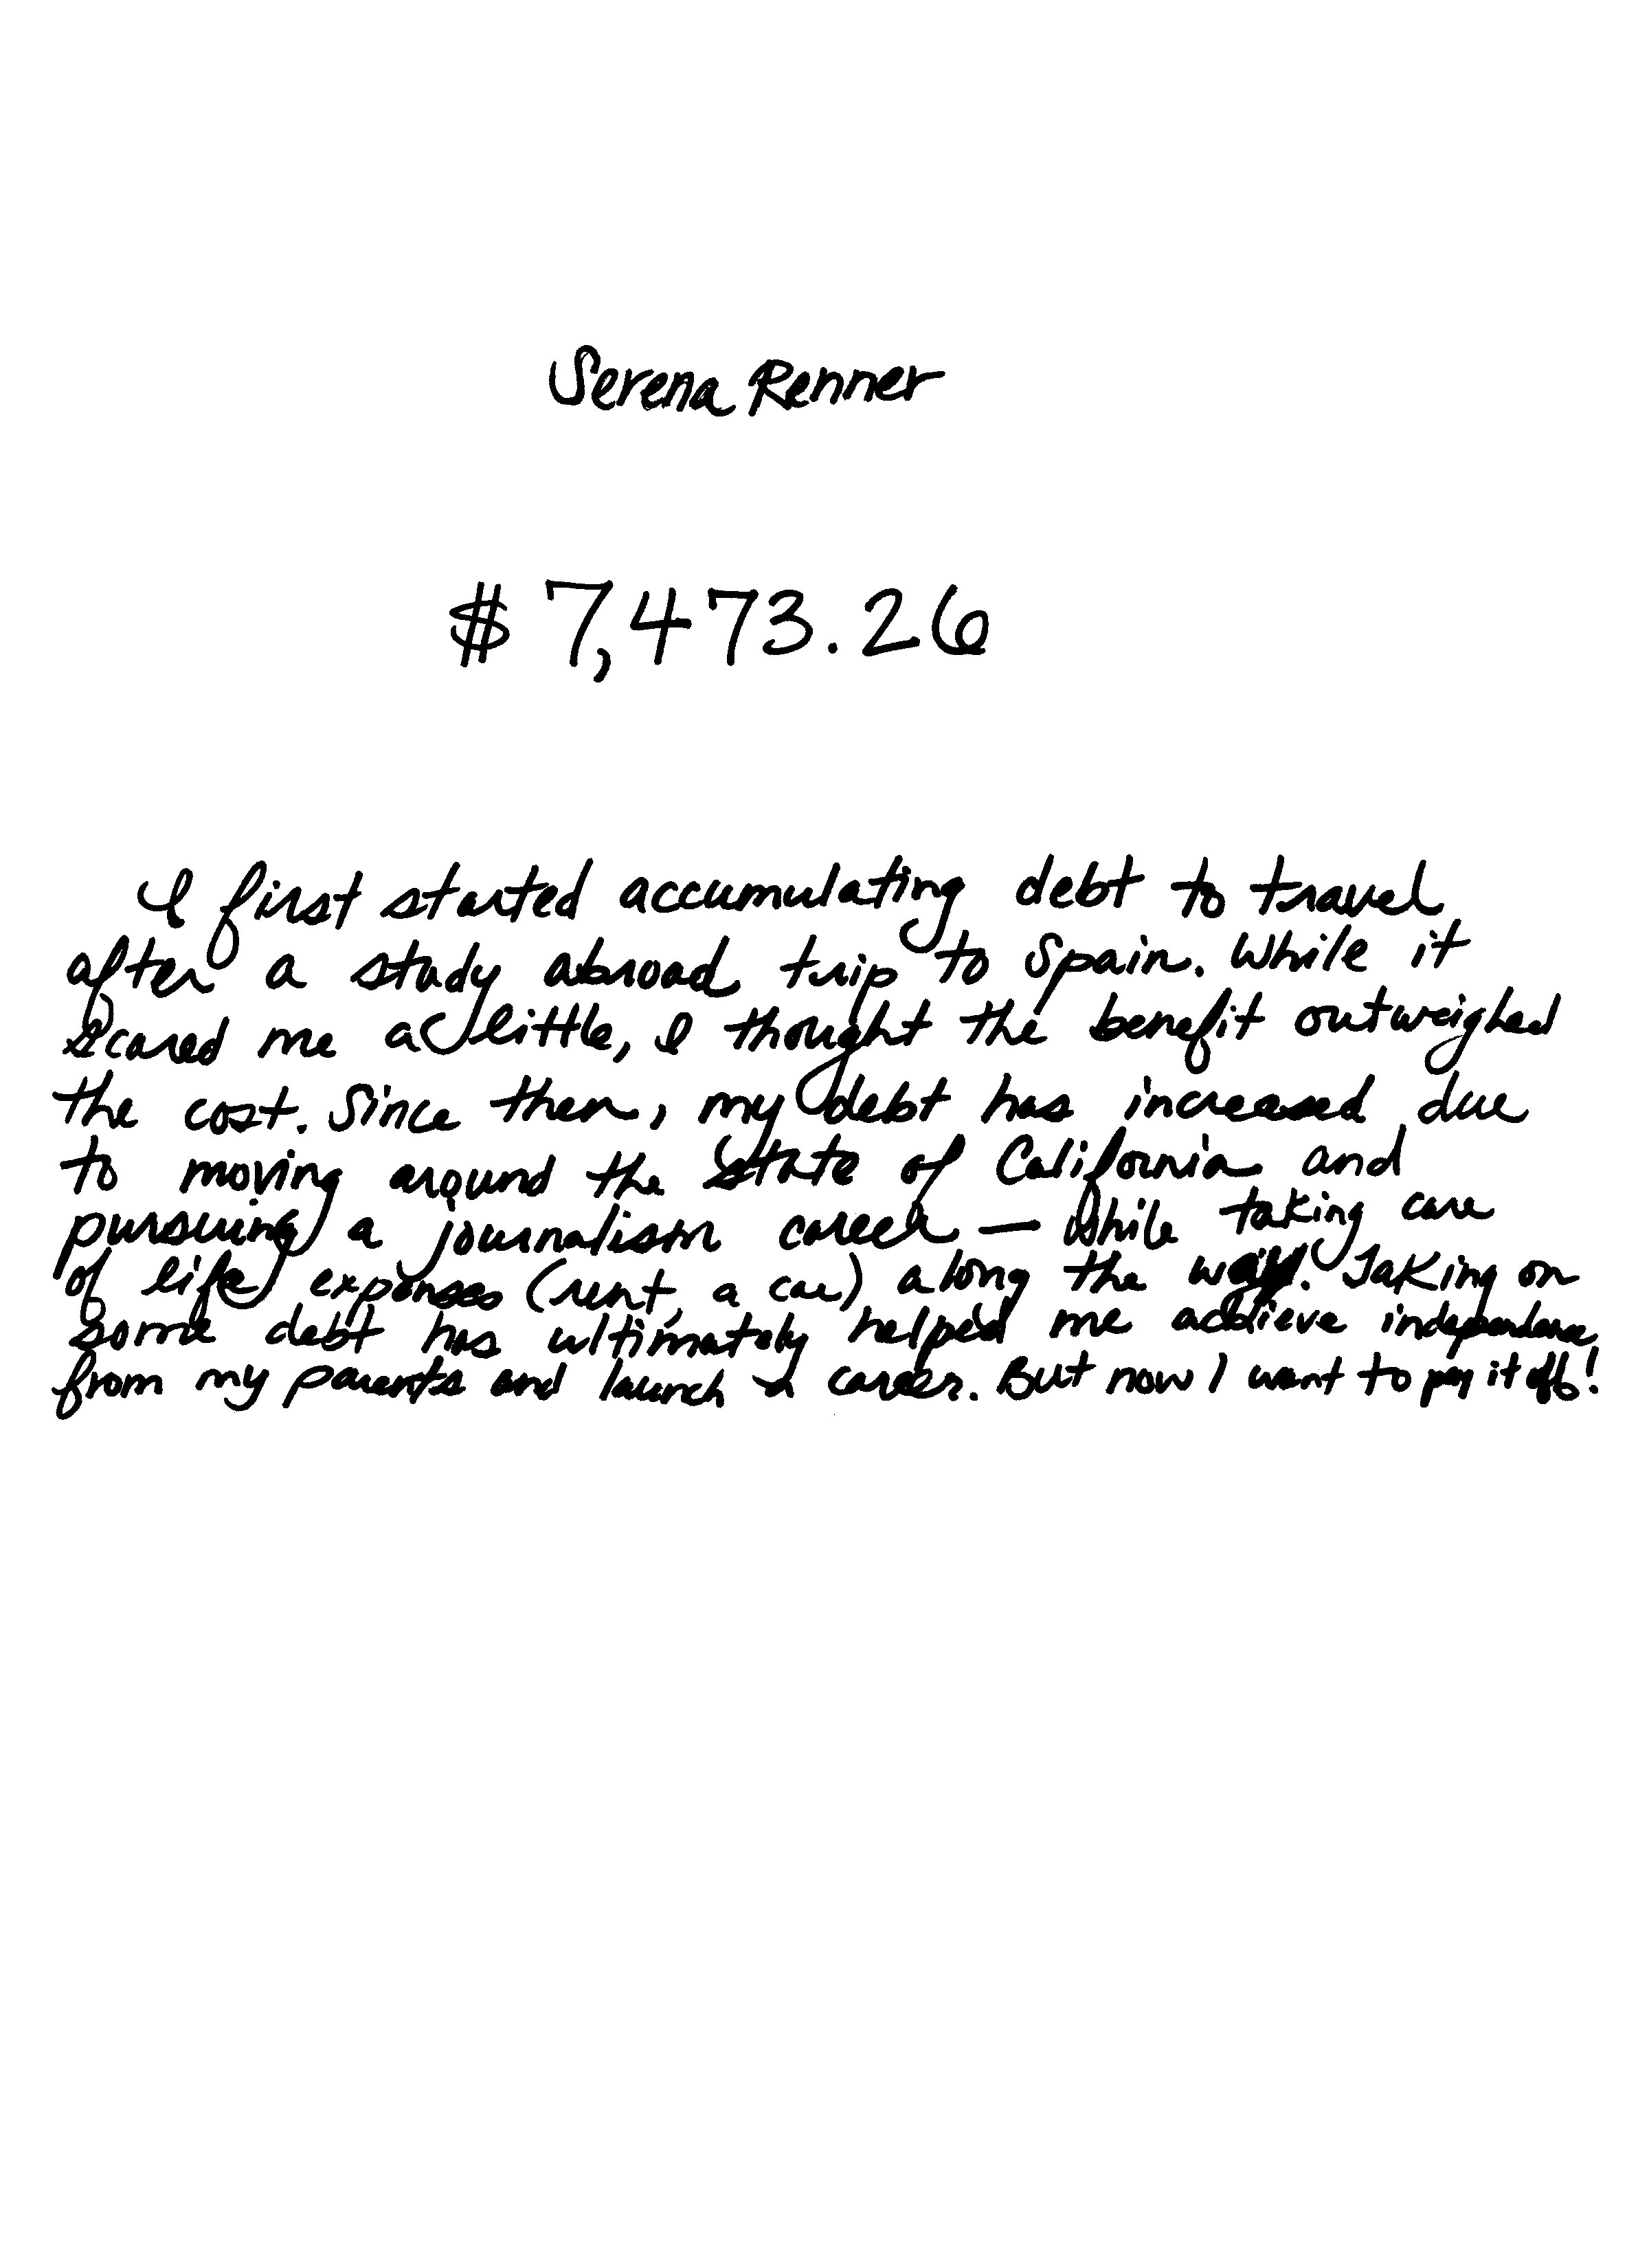 Serena Renner
$ 7,473.26
I first started accumulating debt to travel
after a study abroad trip to Spain. While it
scared me a little, I thought the benefit outweighed
the cost. Since then, my debt has increased due
to moving around the state of California and
pursuing a journalism career — while taking care
of life expenses (rent, a car) along the way. Taking on
some debt has ultimately helped me achieve independence
from my parents and launch a career. But now I want to pay it off!